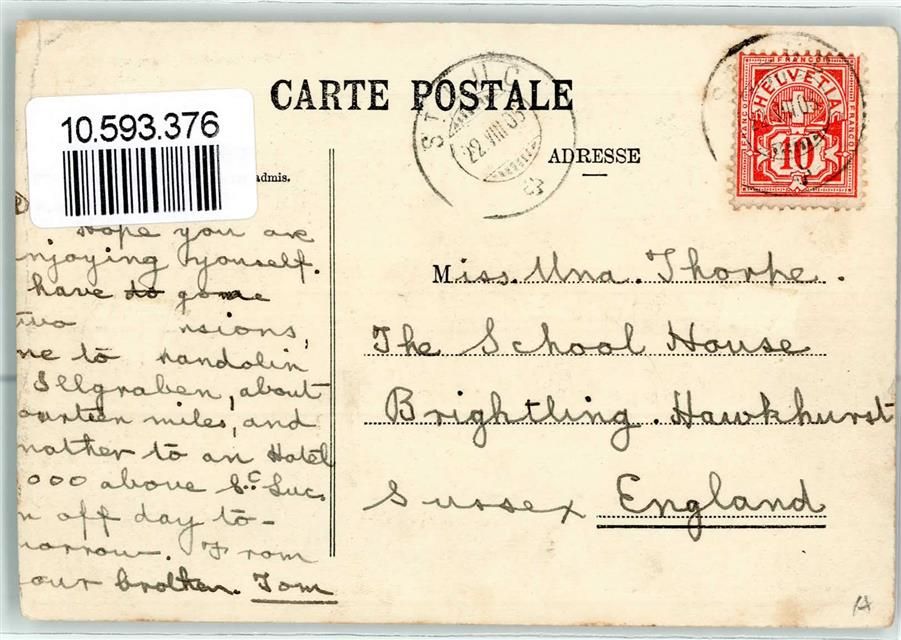 CARTE POSTALE
10.593.376
admis.
ADRESSE
ST LUC
22.VIII.05
FRANCO
HELVETIA
FRANCO
FRANCO
10
Hope you are
njoying yourself.
have to gone
two nsions,
ne to handolin
Illgraben, about
ourteen miles, and
nother to an Hotel
000 above St. Luc.
n off day to-
morrow. From
our brother. Tom
Miss. Una. Thorpe.
The School House
Brightling. Hawkhurst
Sussex England